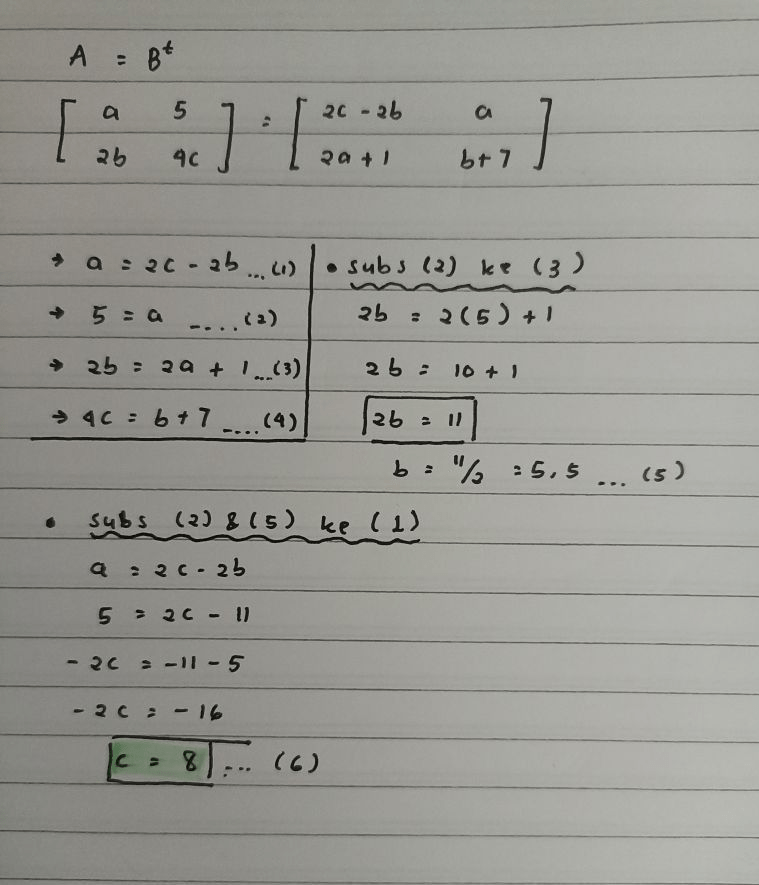 A = Bᵗ
[ a 5 ] = [ 2c - 2b a ]
[ 2b 4c ] [ 2a + 1 b + 7 ]
→ a = 2c - 2b ... (1)
→ 5 = a ..... (2)
→ 2b = 2a + 1 ... (3)
→ 4c = b + 7 ..... (4)
• subs (2) ke (3)
2b = 2(5) + 1
2b = 10 + 1
2b = 11
b = 11/2 = 5,5 ... (5)
• subs (2) & (5) ke (1)
a = 2c - 2b
5 = 2c - 11
- 2c = -11 - 5
- 2c = - 16
c = 8 ... (6)